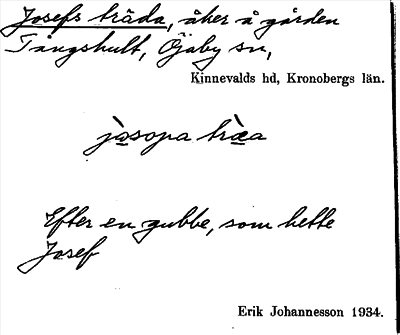 Josefs träda, åker å gården
Tångshult, Öjaby sn,
Kinnevalds hd, Kronobergs län.
jàsopa træ̀a
Efter en gubbe, som hette
Josef
Erik Johannesson 1934.